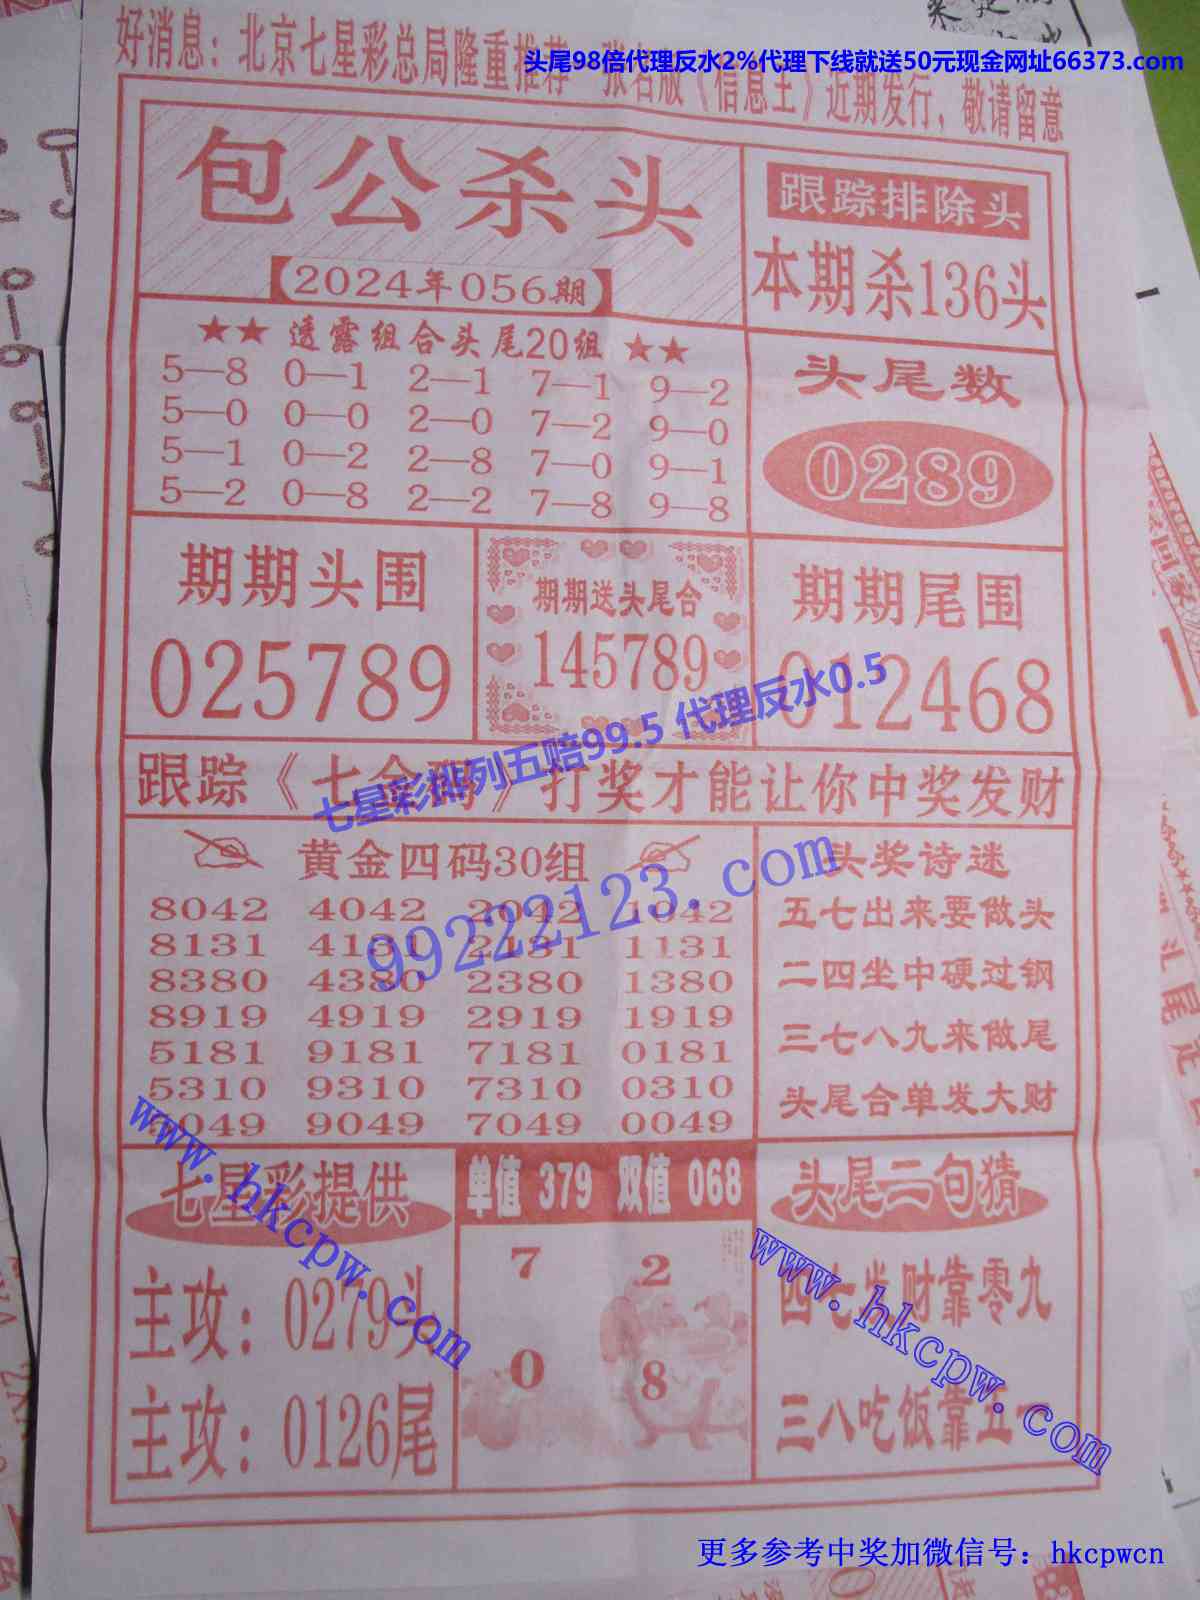 好消息：北京七星彩总局隆重推荐
《信息王》近期发行，敬请留意
头尾98倍代理反水2%代理下线就送50元现金网址66373.com
包公杀头
【2024年056期】
跟踪排除头
本期杀136头
★★ 透露组合头尾20组 ★★
5—8 0—1 2—1 7—1 9—2
5—0 0—0 2—0 7—2 9—0
5—1 0—2 2—8 7—0 9—1
5—2 0—8 2—2 7—8 9—8
头尾数
0289
期期头围
025789
期期送头尾合
145789
期期尾围
012468
七星彩排列五赔99.5 代理反水0.5
跟踪《七金码》打奖才能让你中奖发财
黄金四码30组
8042 4042 2042 1042
8131 4131 2131 1131
8380 4380 2380 1380
8919 4919 2919 1919
5181 9181 7181 0181
5310 9310 7310 0310
5049 9049 7049 0049
99222123.com
头奖诗迷
五七出来要做头
二四坐中硬过钢
三七八九来做尾
头尾合单发大财
七星彩提供
主攻：0279头
主攻：0126尾
www.hkcpw.com
单值 379 双值 068
7 2
0 8
头尾二句猜
四七发财靠零九
三八吃饭靠五一
www.hkcpw.com
更多参考中奖加微信号：hkcpwcn